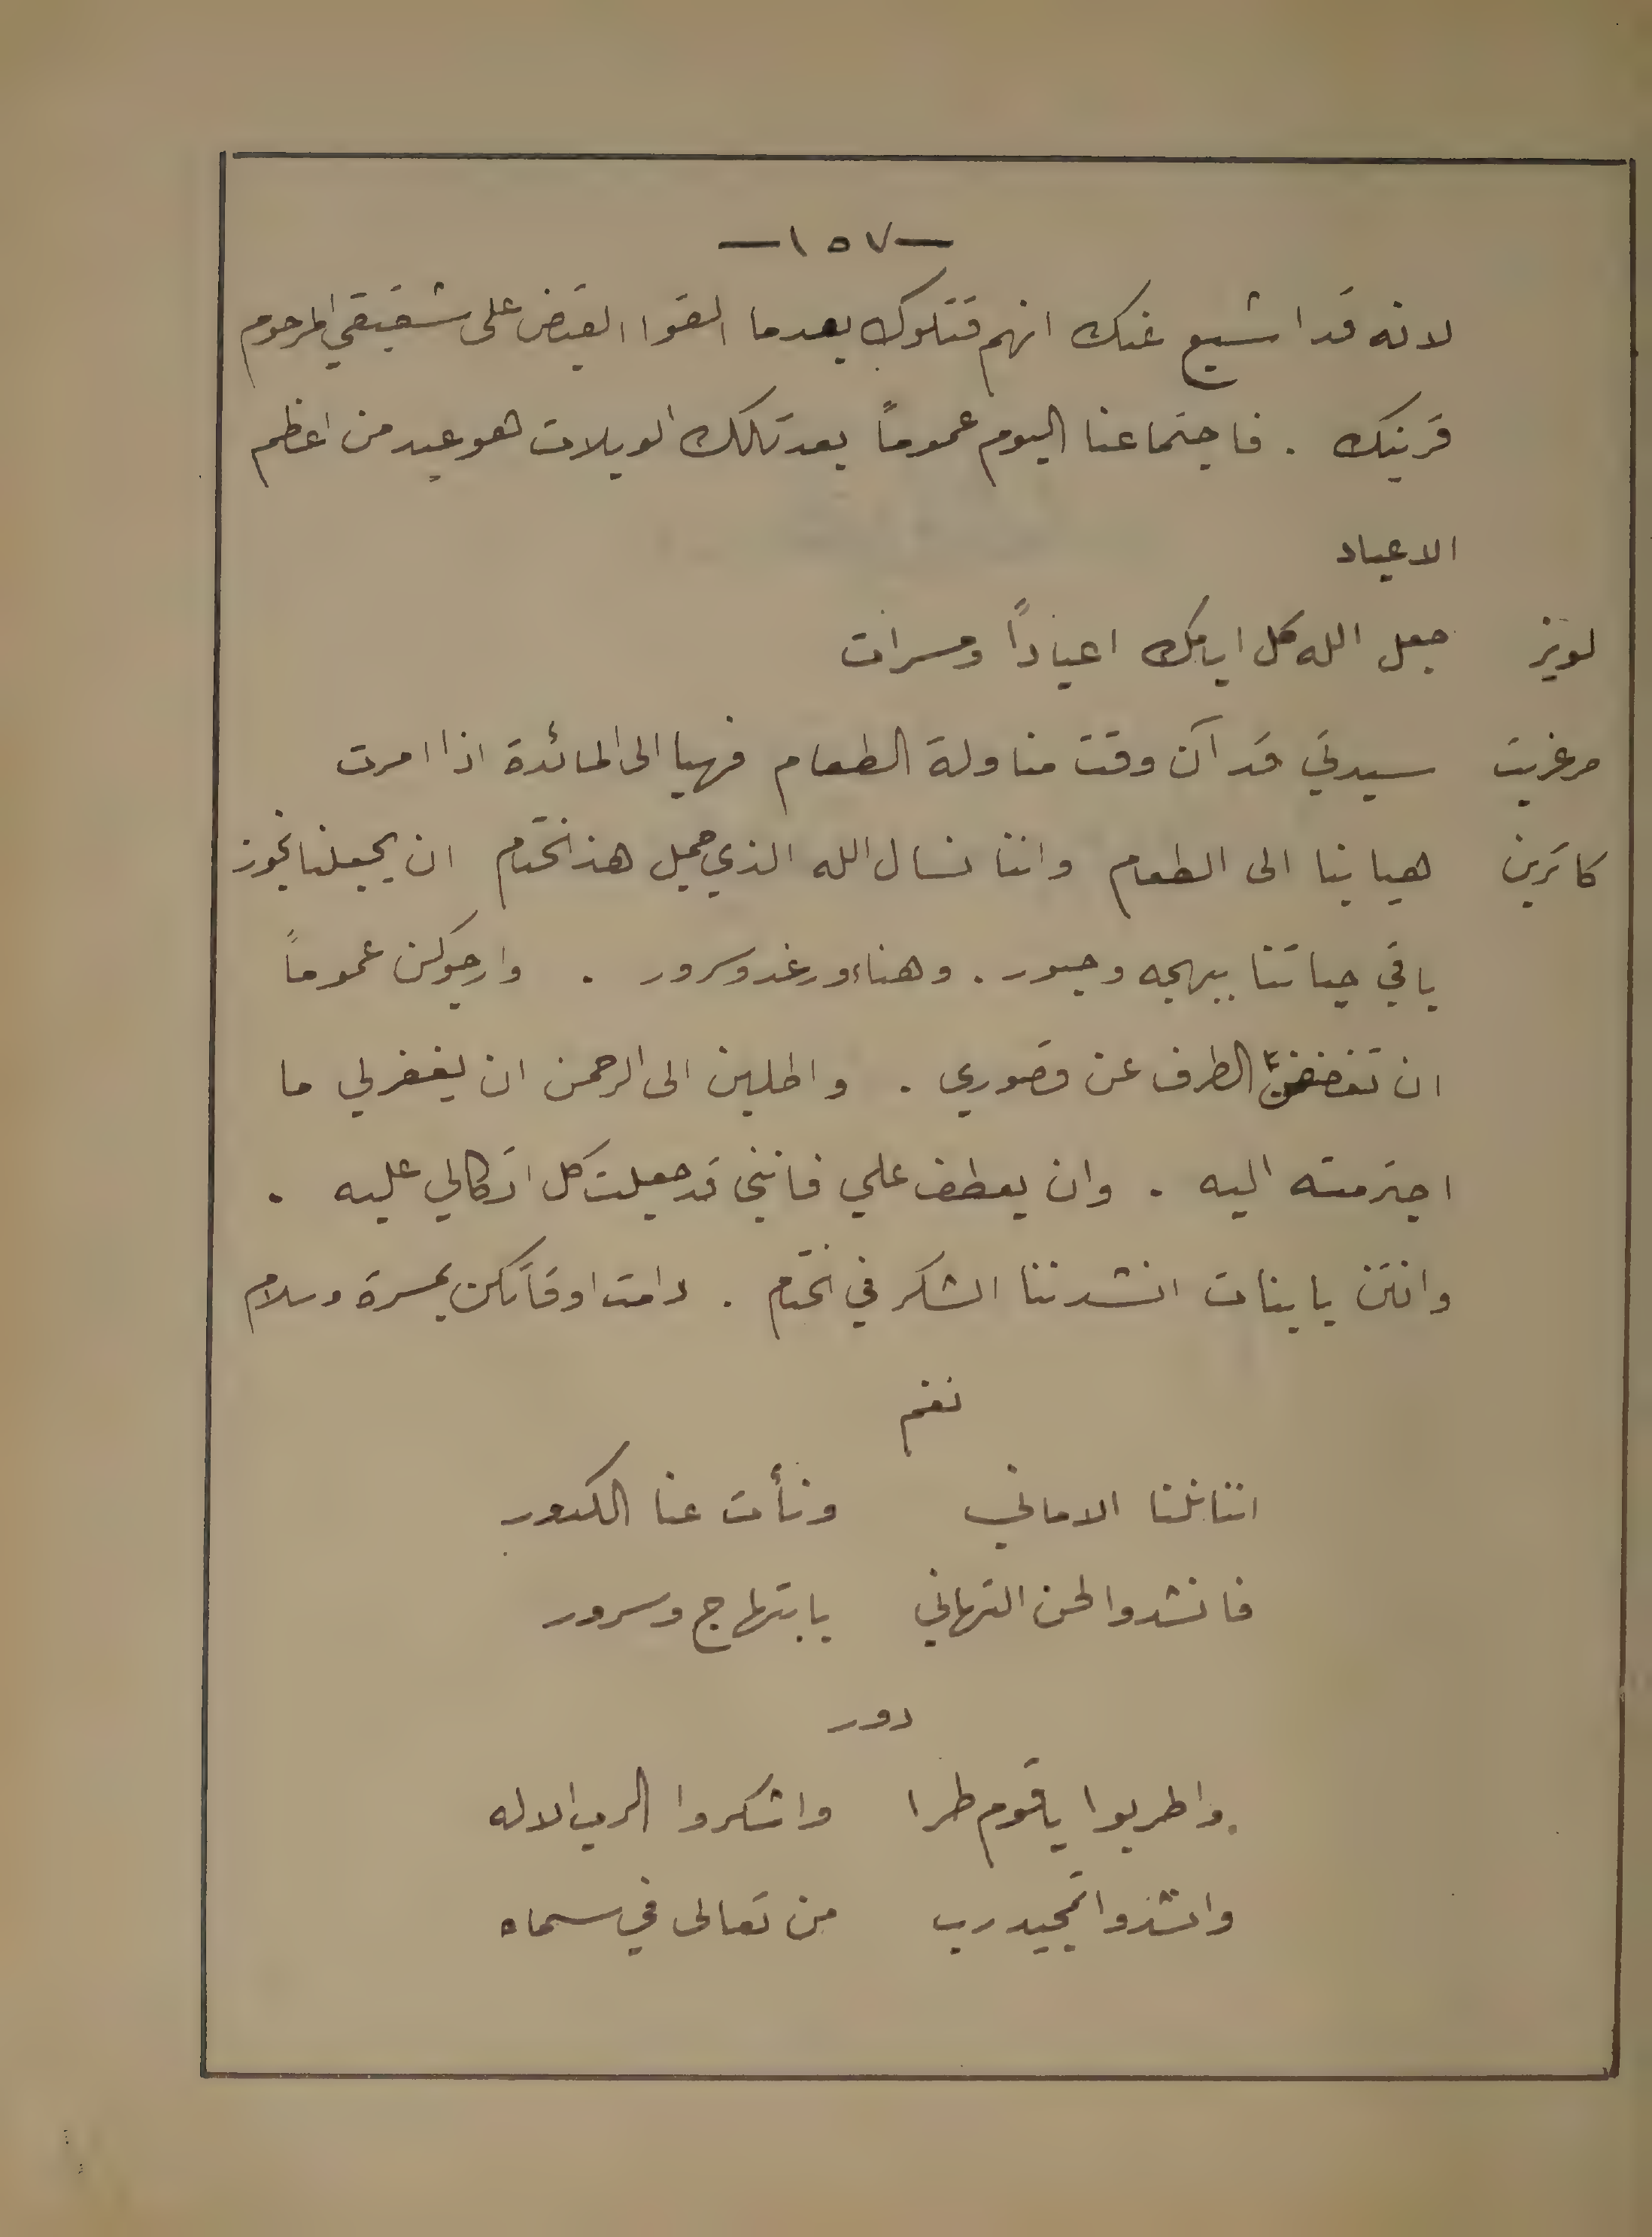 — ١٥٧ —
لانه قد اشيع عنك انهم قتلوك بعدما القوا القبض على شقيقي المرحوم
قرينك . فاجتماعنا اليوم عموماً بعد تلك الويلات هو عيد من اعظم
الاعياد
لويز جعل الله كل ايامك اعياداً ومسرات
مرغريت سيدتي قد آن وقت مناولة الطعام فهيا الى المائدة اذا امرت
كاترين هيا بنا الى الطعام واننا نسال الله الذي جمل هذا الختام ان يجعلنا نجوز
باقي حياتنا ببهجه وحبور . وهناء ورغد وسرور . وارجوكن عموماً
ان تغضضنّ الطرف عن قصوري . واطلبن الى الرحمن ان يغفر لي ما
اجترمته اليه . وان يعطف علي فانني قد جعلت كل اتكالي عليه .
وانتن يا بنات انشدننا الشكر في الختام . دامت اوقاتكن بمسرة وسلام
نغم
اننا نلنا الاماني ونأت عنا الكدور
فانشدوا لحن التهاني بابتهاج وسرور
دور
واطربوا يا قوم طرا واشكروا الرب الاله
وانشدوا تمجيد رب من تعالى في سماه